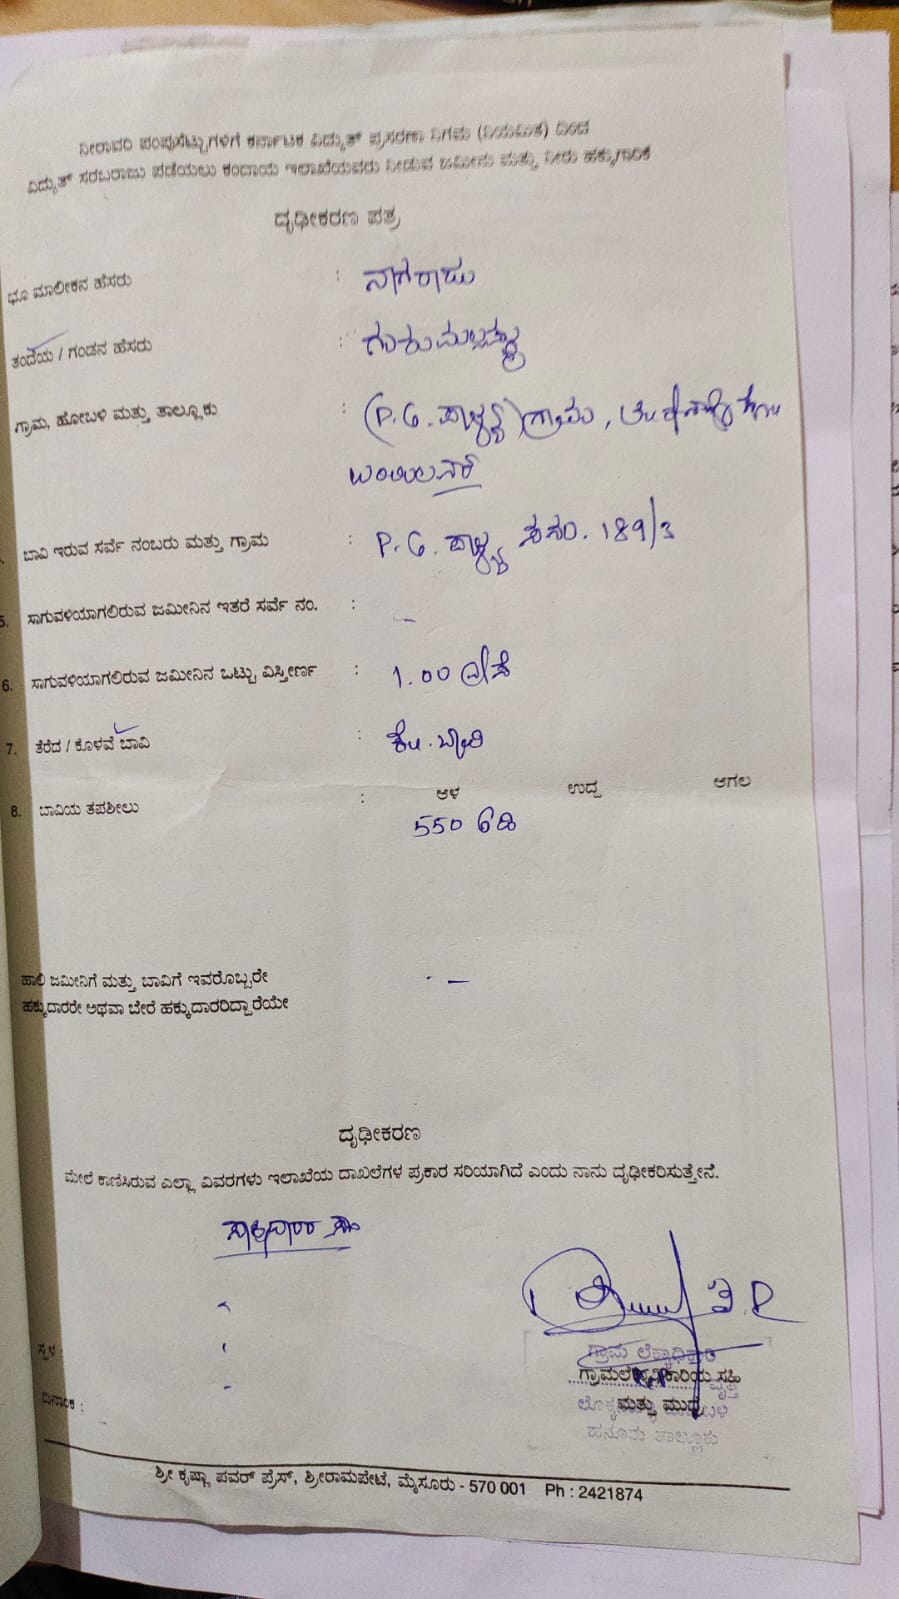 ನೀರಾವರಿ ಪಂಪುಸೆಟ್ಟುಗಳಿಗೆ ಕರ್ನಾಟಕ ವಿದ್ಯುತ್ ಪ್ರಸರಣಾ ನಿಗಮ (ನಿಯಮಿತ) ದಿಂದ
ವಿದ್ಯುತ್ ಸರಬರಾಜು ಪಡೆಯಲು ಕಂದಾಯ ಇಲಾಖೆಯವರು ನೀಡುವ ಜಮೀನು ಮತ್ತು ನೀರು ಹಕ್ಕುಗಾರಿಕೆ
ದೃಢೀಕರಣ ಪತ್ರ
ಭೂ ಮಾಲೀಕನ ಹೆಸರು : ನಾಗರಾಜು
ತಂದೆಯ / ಗಂಡನ ಹೆಸರು :
ಗ್ರಾಮ, ಹೋಬಳಿ ಮತ್ತು ತಾಲ್ಲೂಕು : (P. G. ಪಾಳ್ಯ) ಗ್ರಾಮ,
ಬಾವಿ ಇರುವ ಸರ್ವೆ ನಂಬರು ಮತ್ತು ಗ್ರಾಮ : P. G. ಪಾಳ್ಯ ಸ.ನಂ. 189/3
5. ಸಾಗುವಳಿಯಾಗಲಿರುವ ಜಮೀನಿನ ಇತರೆ ಸರ್ವೆ ನಂ. : -
6. ಸಾಗುವಳಿಯಾಗಲಿರುವ ಜಮೀನಿನ ಒಟ್ಟು ವಿಸ್ತೀರ್ಣ : 1.00
7. ತೆರೆದ / ಕೊಳವೆ ಬಾವಿ : ಕೊ. ಬಾವಿ
8. ಬಾವಿಯ ತಪಶೀಲು : ಆಳ ಉದ್ದ ಅಗಲ
550 ಅಡಿ
ಹಾಲಿ ಜಮೀನಿಗೆ ಮತ್ತು ಬಾವಿಗೆ ಇವರೊಬ್ಬರೇ -
ಹಕ್ಕುದಾರರೇ ಅಥವಾ ಬೇರೆ ಹಕ್ಕುದಾರರಿದ್ದಾರೆಯೇ
ದೃಢೀಕರಣ
ಮೇಲೆ ಕಾಣಿಸಿರುವ ಎಲ್ಲಾ ವಿವರಗಳು ಇಲಾಖೆಯ ದಾಖಲೆಗಳ ಪ್ರಕಾರ ಸರಿಯಾಗಿದೆ ಎಂದು ನಾನು ದೃಢೀಕರಿಸುತ್ತೇನೆ.
ಗ್ರಾಮ ಲೆಕ್ಕಾಧಿಕಾರಿ
ಸ್ಥಳ :
ಗ್ರಾಮಲೆಕ್ಕಾಧಿಕಾರಿಯ ಸಹಿ
ಮತ್ತು ಮುದ್ರೆ
ದಿನಾಂಕ :
ಹನೂರು ತಾಲ್ಲೂಕು
ಶ್ರೀ ಕೃಷ್ಣಾ ಪವರ್ ಪ್ರೆಸ್, ಶ್ರೀರಾಮಪೇಟೆ, ಮೈಸೂರು - 570 001 Ph : 2421874